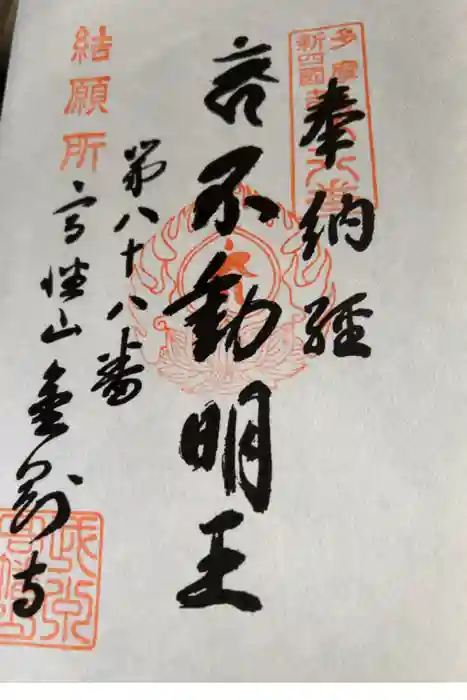 多摩
新四国
奉納経
不動明王
結願所
第八十八番
高幡山 金剛寺